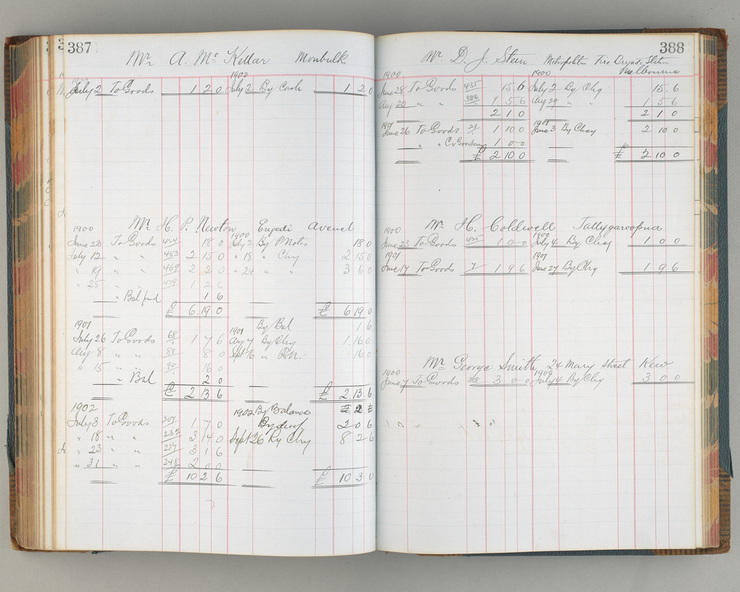 387
Mr A. Mc Kellar Monbulk
1900
July 2 To Goods 1 2 0 July 2 By Cash 1 2 0
Mr H. P. Newton Avenel
1900 1900
June 28 To Goods 18 0 July 2 By P Notes 18 0
July 12 " " 2 15 0 " 18 " 2 15 0
" 19 " " 2 2 0 " 24 " " 3 6 0
" 25 " " 1 2 6
" Bal fwd 1 6
£ 6 19 0 £ 6 19 0
1901 1901 By Bal 1 6
July 26 To Goods 68 1 7 6 Aug 7 By Chq 1 16 0
Aug 8 " " 8 0 Sept 6 " P.N. 16 0
" 15 " " 16 0
" Bal 2 0
£ 2 13 6 £ 2 13 6
1902 1902 By Balance
July 3 To Goods 1 7 0 2 0 6
" 18 " " 3 14 0 Sept 26 By Chq 8 2 6
" 23 " " 3 1 6
" 31 " " 2 0 0
£ 10 2 6 £ 10 3 0
388
Mr D. J. Stein
Melbourne
1900 1900
June 28 To Goods 15 6 July 2 By Chq 15 6
Aug 22 " " 1 5 6 Aug 29 " " 1 5 6
2 1 0 2 1 0
1901 1901
June 26 To Goods 1 10 0 June 3 By Chq 2 10 0
" " 1 0 0
£ 2 10 0 £ 2 10 0
Mr H. Coldwell Tallygaroopna
1900 1900
June 23 To Goods 1 0 0 July 4 By Chq 1 0 0
1901 1901
June 17 To Goods 7 1 9 6 June 27 By Chq 1 9 6
Mr George Smith, 24 Mary Street Kew
1900 1900
June 7 To Goods 3 0 0 July 4 By Chq 3 0 0